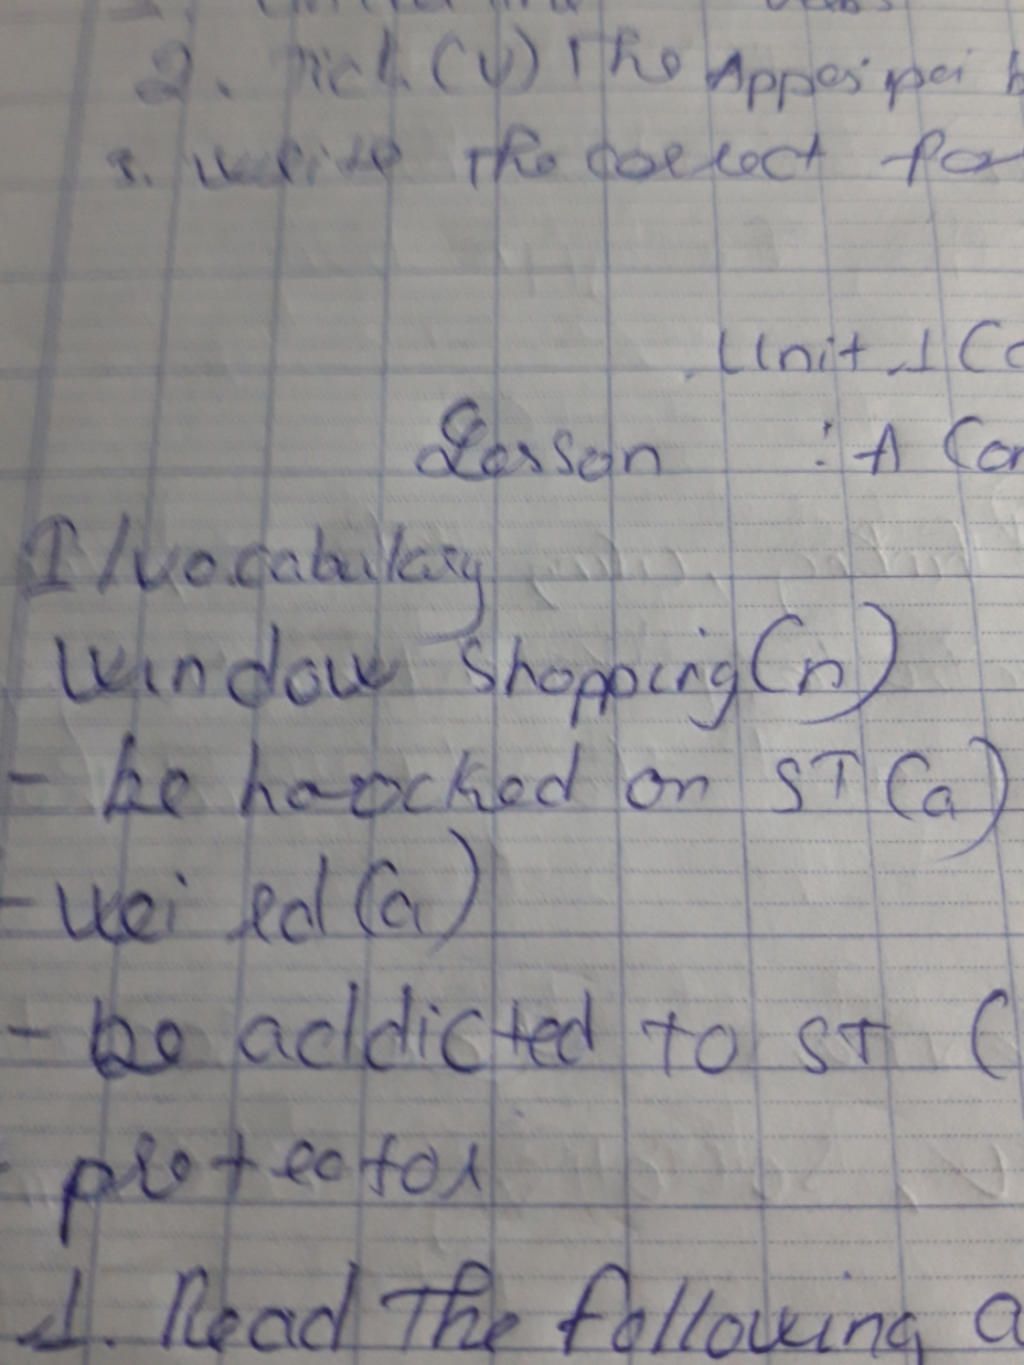 2. Tick (v) The Apposipai
3. Write The correct for
Unit 1 (c
Lesson : A Con
I/vocabulary
Window shopping (n)
- be hoocked on ST (a)
- wei ed (a)
- be addicted to ST (
- protector
1. Read The following a